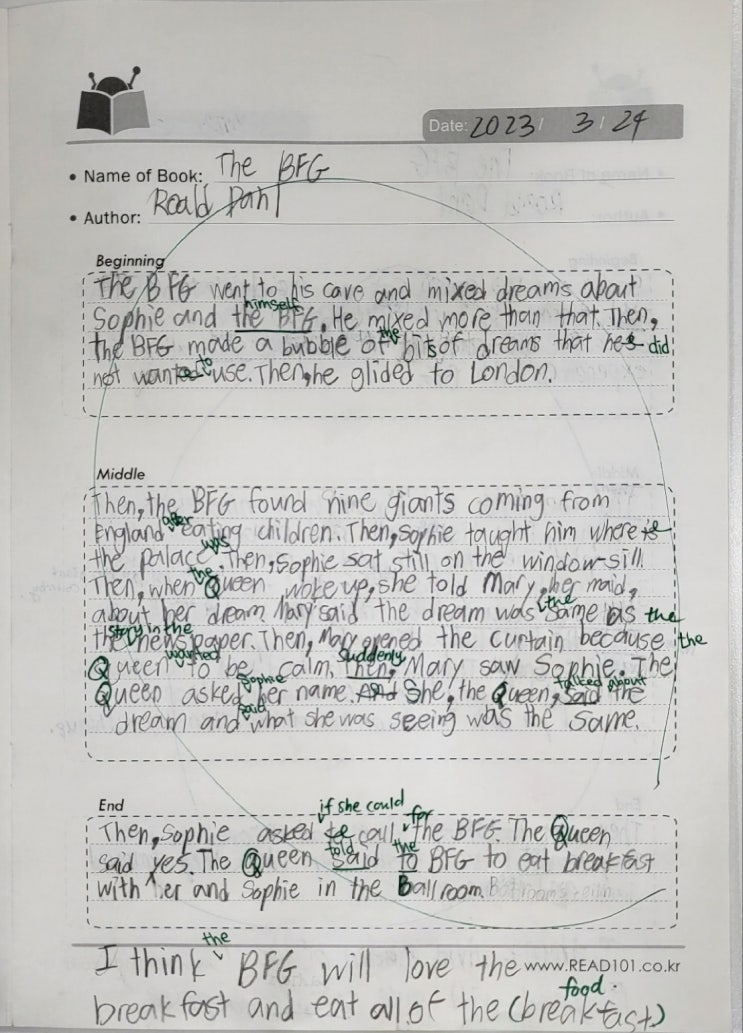 Date: 2023 / 3 / 24
• Name of Book: The BFG
• Author: Roald Dahl
Beginning
The BFG went to his cave and mixed dreams about
himself
Sophie and the BFG. He mixed more than that. Then,
the
the BFG made a bubble of bits of dreams that he did
to
not wanted use. Then, he glided to London.
Middle
Then, the BFG found nine giants coming from
after
England eating children. Then, Sophie taught him where is
was
the palace. Then, Sophie sat still on the window-sill.
the
Then, when Queen woke up, she told Mary, her maid,
the
about her dream. Mary said the dream was same as the
story in the
the newspaper. Then, Mary opened the curtain because the
wanted Suddenly,
Queen to be calm. Then, Mary saw Sophie. The
Sophie talked about
Queen asked her name. And She, the Queen, said the
said
dream and what she was seeing was the same.
End
if she could for
Then, Sophie asked to call the BFG. The Queen
told the
said yes. The Queen said to BFG to eat breakfast
with her and Sophie in the Ballroom.
the
I think BFG will love the www.READ101.co.kr
food.
breakfast and eat all of the (breakfast)